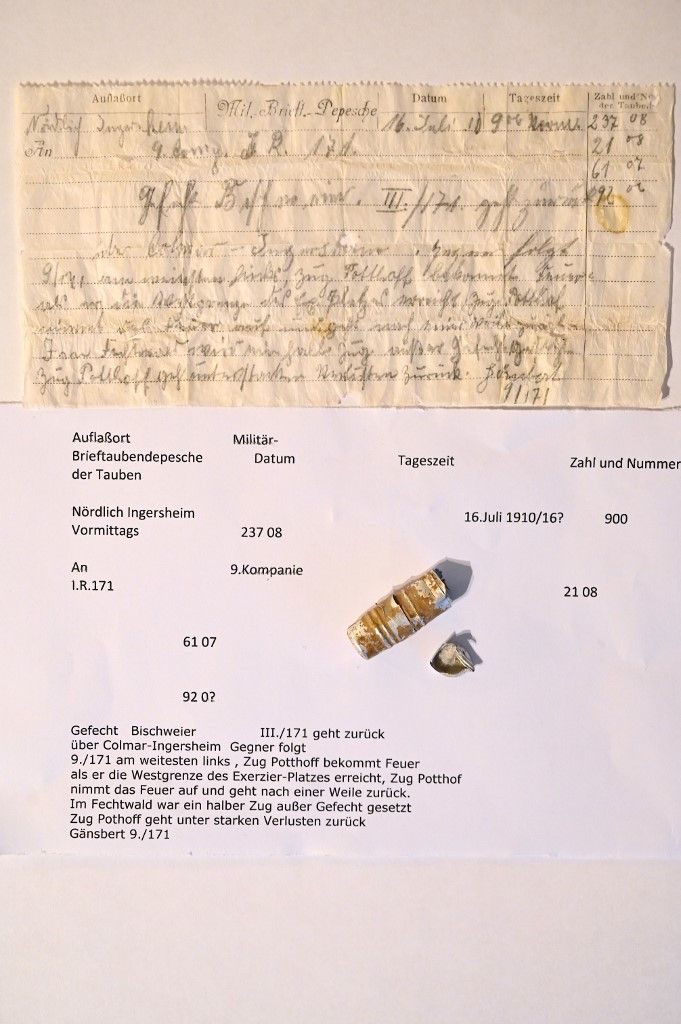 Auflaßort Mil. Brieft.-Depesche Datum Tageszeit Zahl und No der Tauben
Nördlich Ingersheim 16. Juli 9 00 237 08
An 9. Comp. I. R. 171. 21 08
61 07
Gefecht III/171. geht zurück 92
über Colmar – Ingersheim. Gegner folgt
9/171 am weitesten links Zug Potthoff bekommt Feuer
als er die Westgrenze des Exz. Platzes erreicht, Zug Potthof
nimmt das Feuer auf und geht nach einer Weile zurück.
Im Fechtwald wird ein halber Zug außer Gefecht gesetzt
Zug Potthoff geht unter starken Verlusten zurück.
9/171
Auflaßort Militär-
Brieftaubendepesche Datum Tageszeit Zahl und Nummer
der Tauben
Nördlich Ingersheim 16.Juli 1910/16? 900
Vormittags 237 08
An 9.Kompanie
I.R.171 21 08
61 07
92 0?
Gefecht Bischweier III./171 geht zurück
über Colmar-Ingersheim Gegner folgt
9./171 am weitesten links , Zug Potthoff bekommt Feuer
als er die Westgrenze des Exerzier-Platzes erreicht, Zug Potthof
nimmt das Feuer auf und geht nach einer Weile zurück.
Im Fechtwald war ein halber Zug außer Gefecht gesetzt
Zug Pothoff geht unter starken Verlusten zurück
Gänsbert 9./171